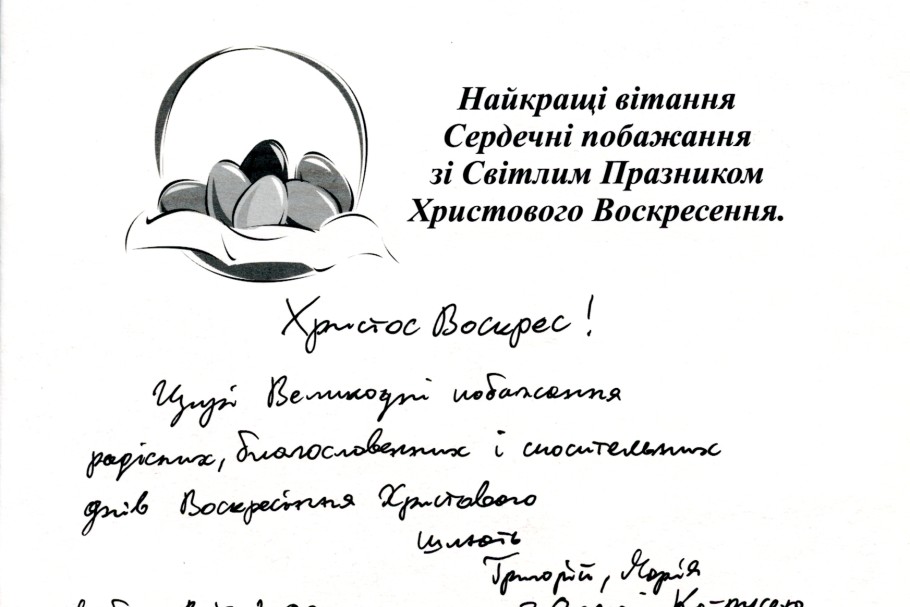 Найкращі вітання
Сердечні побажання
зі Світлим Празником
Христового Воскресення.
Христос Воскрес!
Щирі Великодні побажання
радісних, благословенних і спасительних
днів Воскресіння Христового
шлють
Григорій, Марія